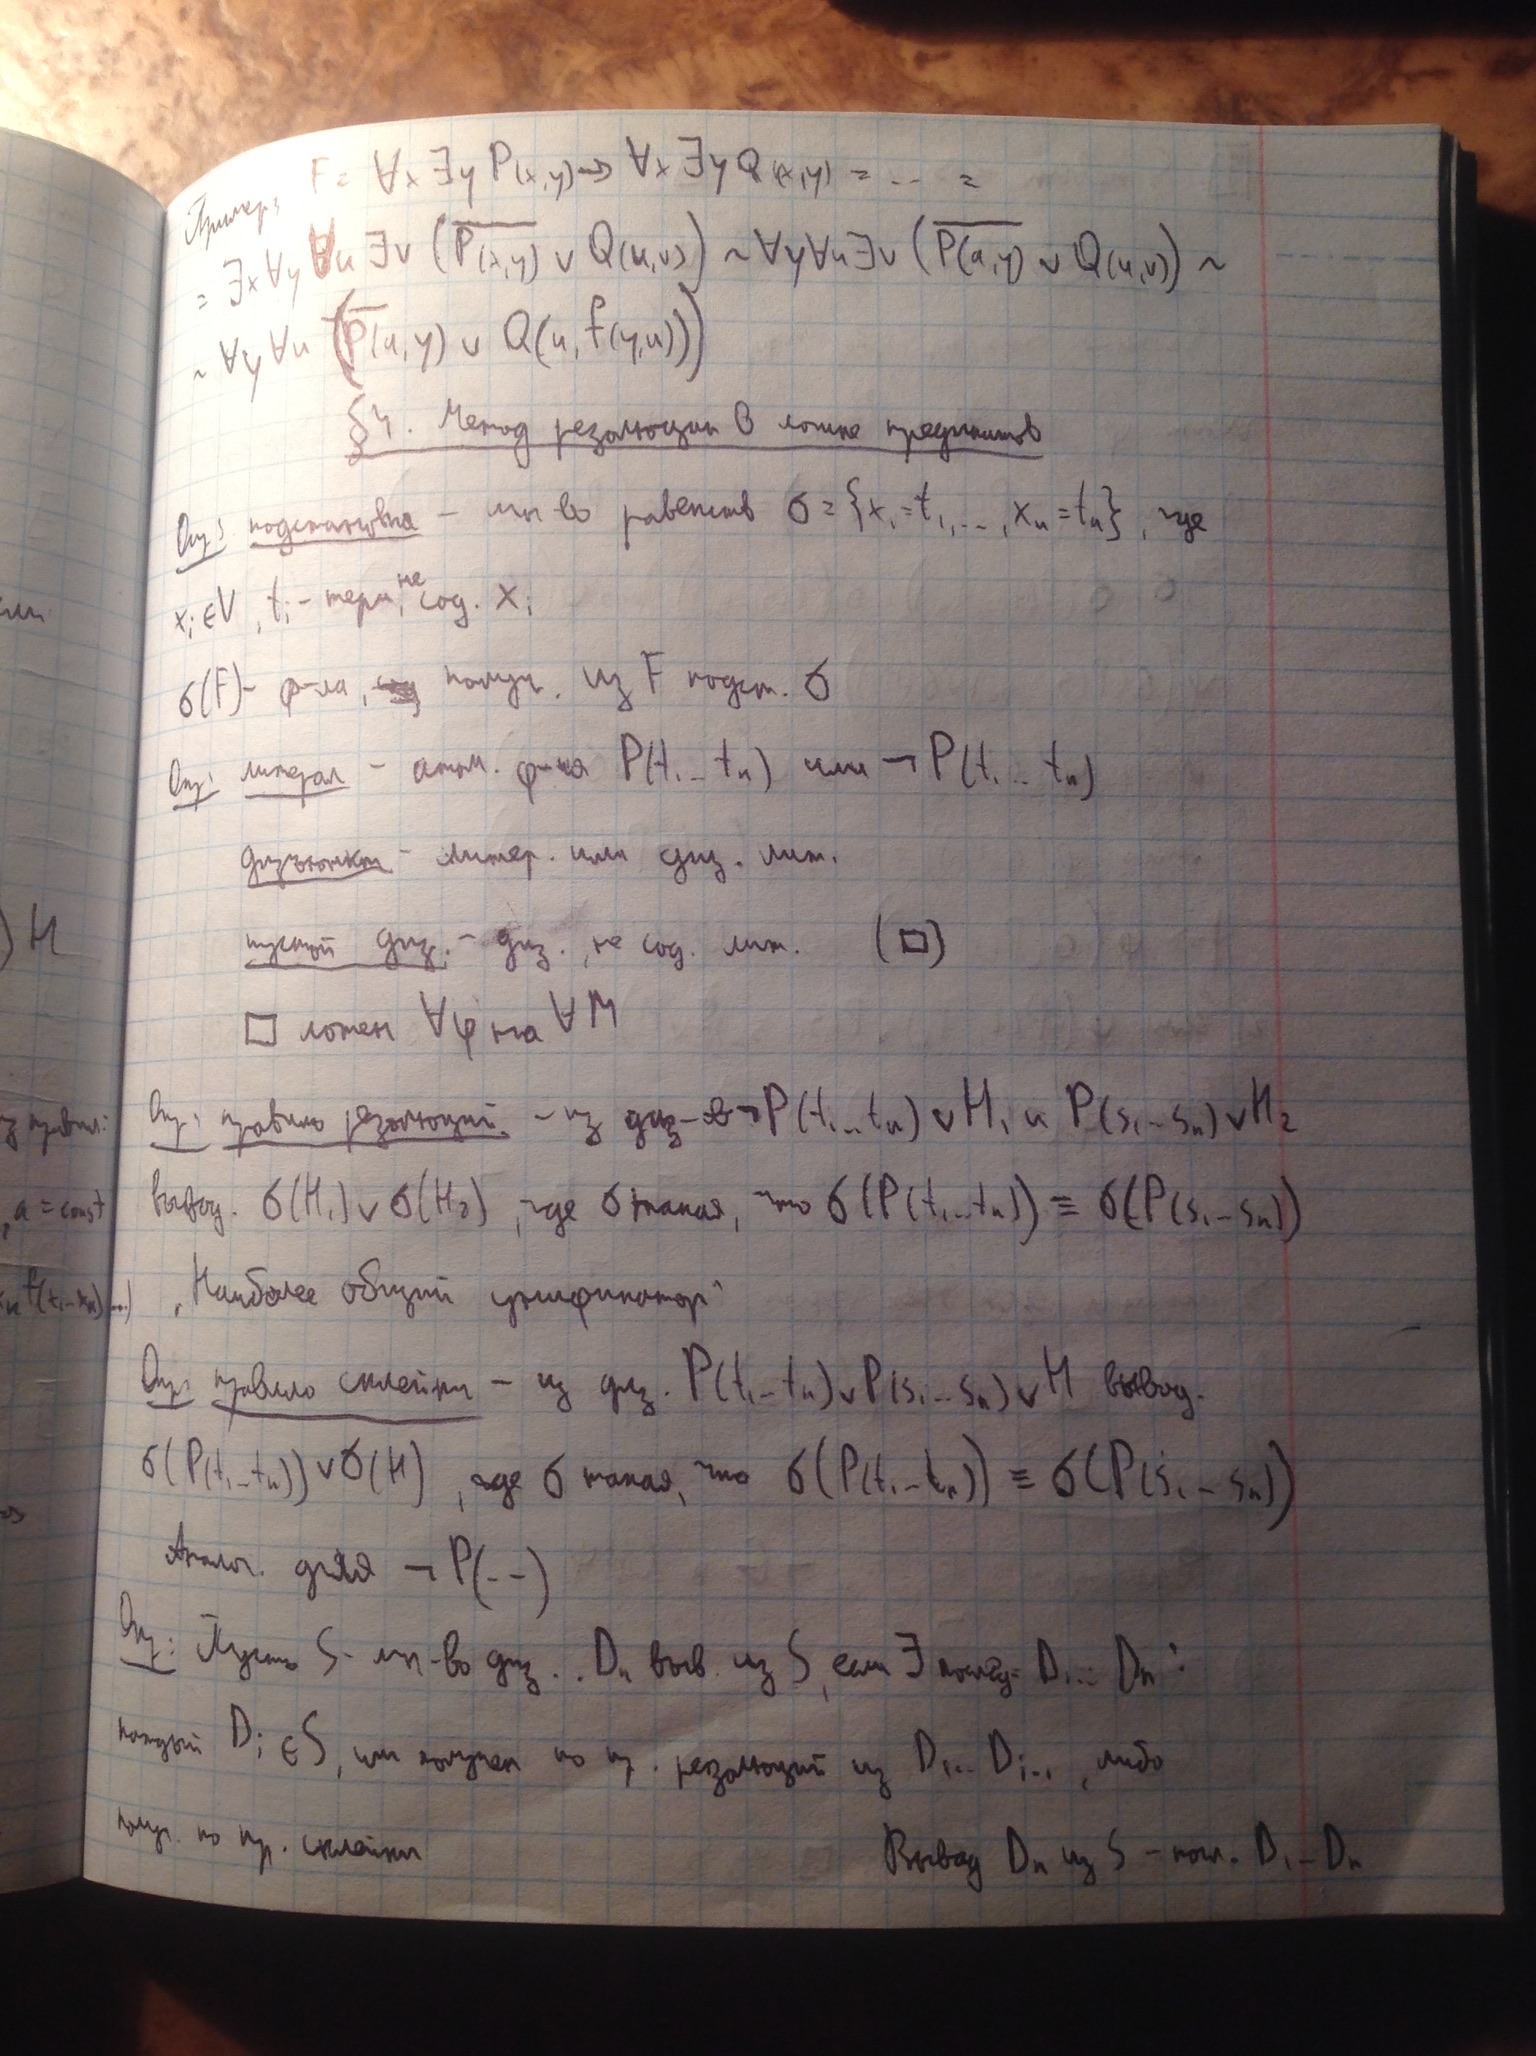 Пример: F = ∀x ∃y P(x,y) → ∀x ∃y Q(x,y) = ... =
= ∃x ∀y ∀u ∃v (\overline{P(x,y)} ∨ Q(u,v)) ~ ∀y ∀u ∃v (\overline{P(a,y)} ∨ Q(u,v)) ~
~ ∀y ∀u (\overline{P}(a,y) ∨ Q(u, f(y,u)))
§4. Метод резолюции в логике предикатов
Опр: подстановка – мн-во равенств σ = {x₁=t₁, ..., xₙ=tₙ}, где
xᵢ ∈ V, tᵢ – терм, не сод. xᵢ
σ(F) – ф-ла, получ. из F подст. σ
Опр: литерал – атом. ф-ла P(t₁...tₙ) или ¬P(t₁...tₙ)
дизъюнкт – литер. или диз. лит.
пустой диз. – диз., не сод. лит. (□)
□ ложен ∀φ на ∀M
Опр: правило резолюций – из диз-в ¬P(t₁...tₙ) ∨ H₁ и P(s₁...sₙ) ∨ H₂
вывод. σ(H₁) ∨ σ(H₂), где σ такая, что σ(P(t₁...tₙ)) ≡ σ(P(s₁...sₙ))
"Наиболее общий унификатор"
Опр: правило склейки – из диз. P(t₁...tₙ) ∨ P(s₁...sₙ) ∨ H вывод.
σ(P(t₁...tₙ)) ∨ σ(H), где σ такая, что σ(P(t₁...tₙ)) ≡ σ(P(s₁...sₙ))
Аналог. для ¬P(...)
Опр: Пусть S – мн-во диз. Dₙ выв. из S, если ∃ послед. D₁...Dₙ:
каждый Dᵢ ∈ S, или получен по пр. резолюций из D₁...Dᵢ₋₁, либо
получ. по пр. склейки
Вывод Dₙ из S – посл. D₁...Dₙ
) H
, a = const